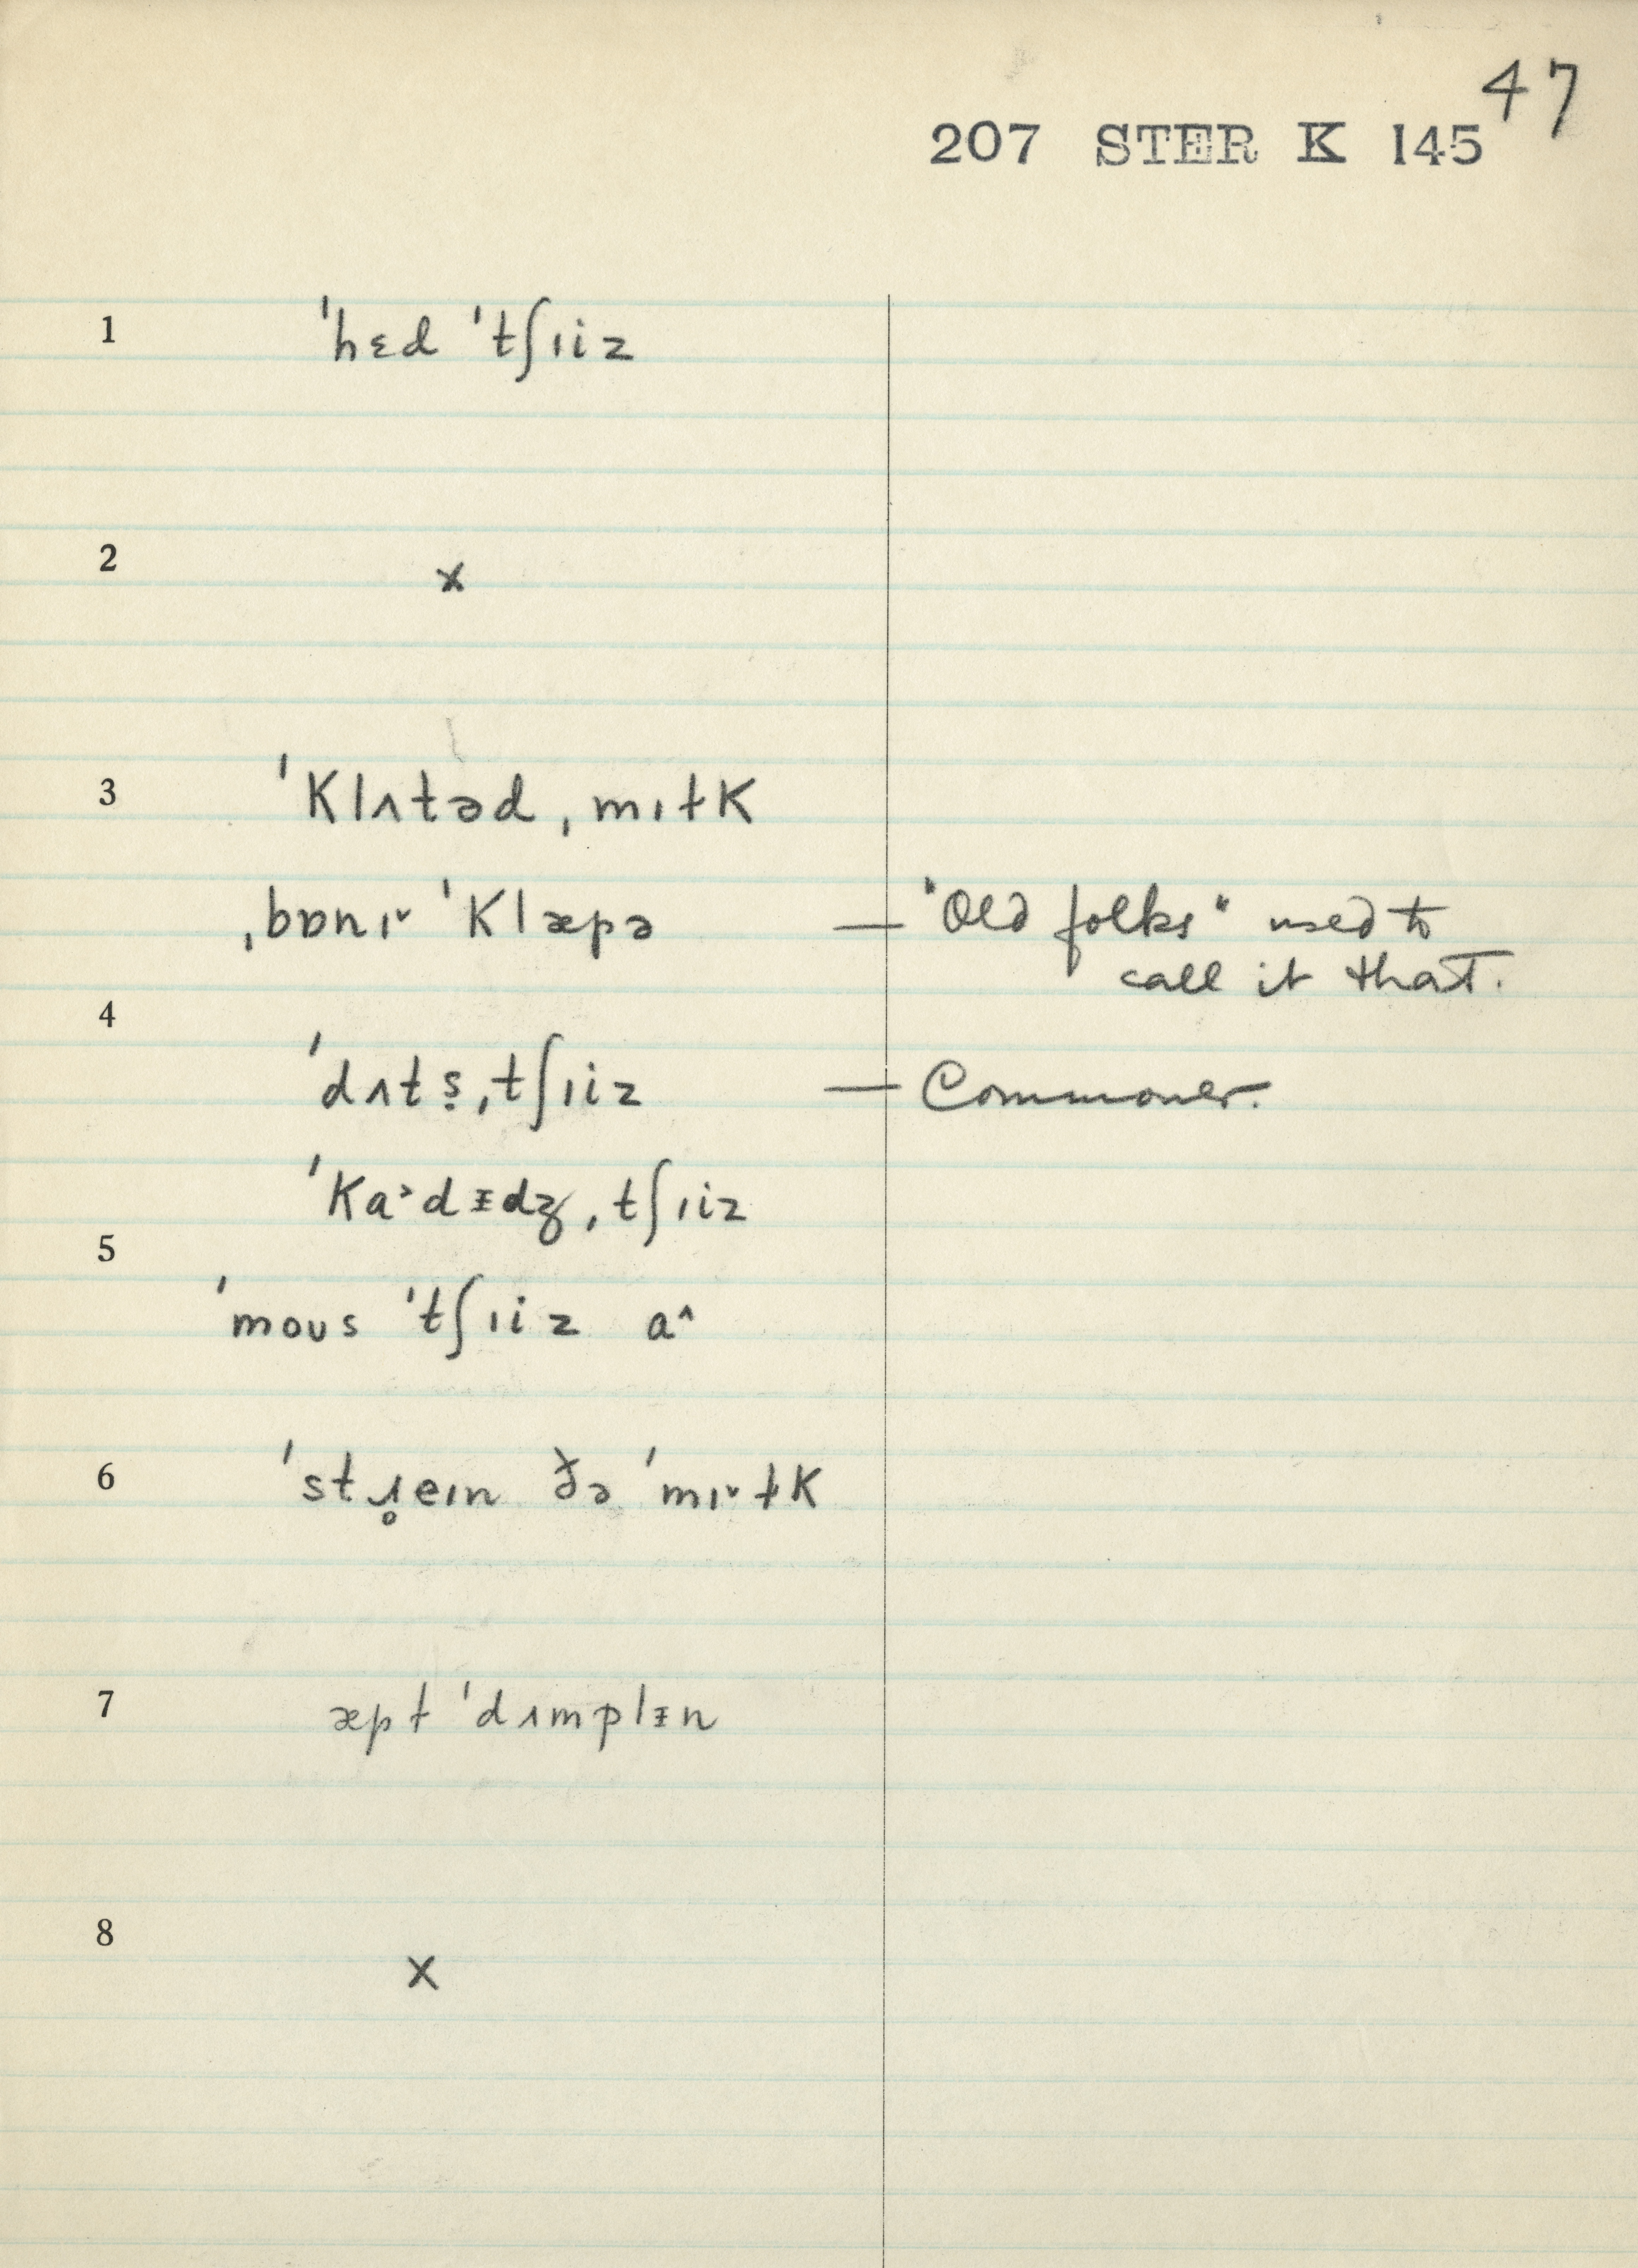 47
207 STER K 145
1 ˈhɛd ˈtʃɪiz
2 x
3 ˈKlʌtəd ˌmɪɫK
ˌbɒnɪ˅ ˈKlæpə — "Old folks" used to
call it that.
4
ˈdʌts̬ ˌtʃɪiz — Commoner.
ˈKa˃dᵻdʒ ˌtʃɪiz
5
ˈmoʊs ˈtʃɪiz a^
6 ˈstɹ̥eɪn ðə ˈmɪ˅ɫK
7 æpɫ ˈdʌmplᵻn
8 x